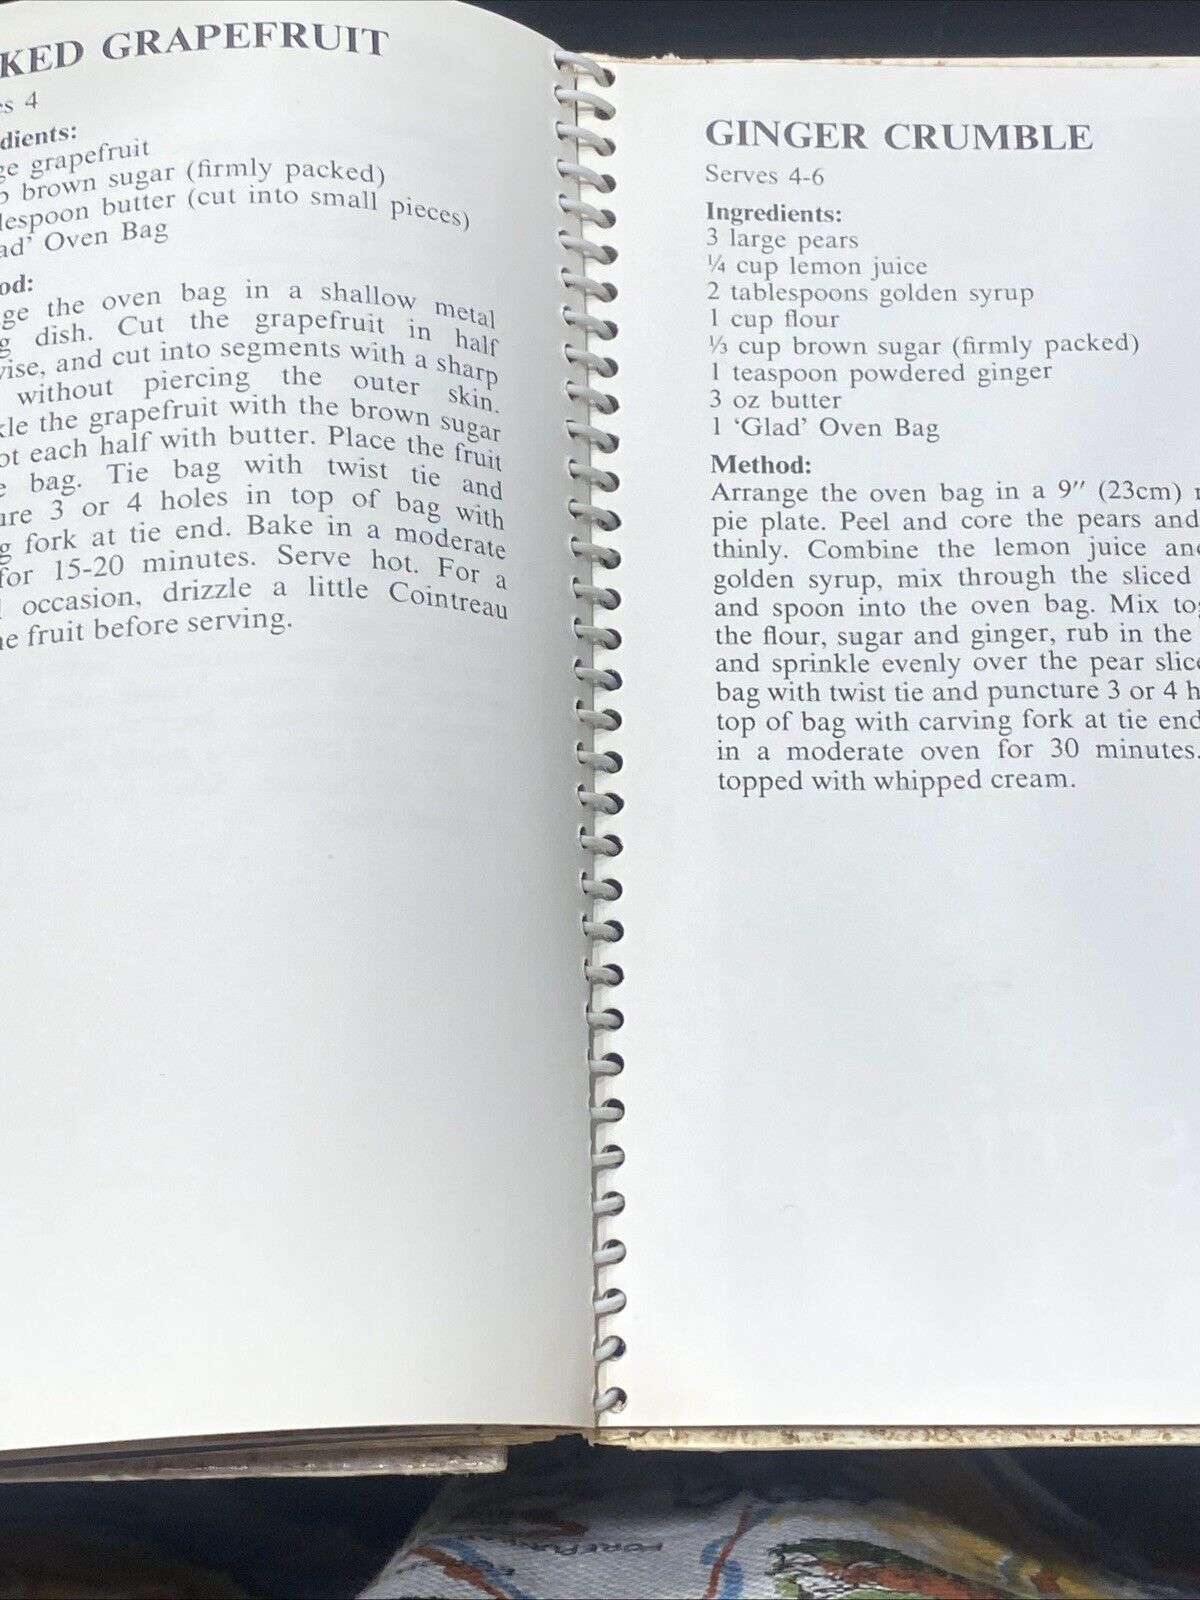 KED GRAPEFRUIT
es 4
dients:
ge grapefruit
p brown sugar (firmly packed)
lespoon butter (cut into small pieces)
ad' Oven Bag
od:
ge the oven bag in a shallow metal
g dish. Cut the grapefruit in half
wise, and cut into segments with a sharp
without piercing the outer skin.
kle the grapefruit with the brown sugar
ot each half with butter. Place the fruit
e bag. Tie bag with twist tie and
ure 3 or 4 holes in top of bag with
g fork at tie end. Bake in a moderate
for 15-20 minutes. Serve hot. For a
l occasion, drizzle a little Cointreau
he fruit before serving.
GINGER CRUMBLE
Serves 4-6
Ingredients:
3 large pears
¼ cup lemon juice
2 tablespoons golden syrup
1 cup flour
⅓ cup brown sugar (firmly packed)
1 teaspoon powdered ginger
3 oz butter
1 ‘Glad’ Oven Bag
Method:
Arrange the oven bag in a 9″ (23cm)
pie plate. Peel and core the pears and
thinly. Combine the lemon juice and
golden syrup, mix through the sliced
and spoon into the oven bag. Mix tog
the flour, sugar and ginger, rub in the
and sprinkle evenly over the pear slice
bag with twist tie and puncture 3 or 4 h
top of bag with carving fork at tie end
in a moderate oven for 30 minutes.
topped with whipped cream.